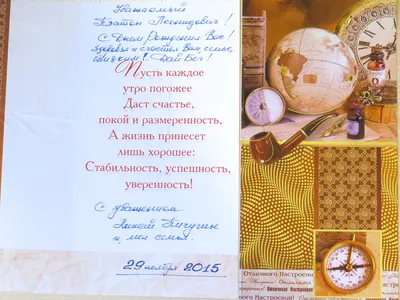 Уважаемый
Платон Леонидович!
С Днем Рождения Вас!
Здоровья и счастья Вам, семье,
близким! Дай Бог!
Пусть каждое
утро погожее
Даст счастье,
покой и размеренность,
А жизнь принесет
лишь хорошее:
Стабильность, успешность,
уверенность!
С уважением
Алексей Пичугин
и моя семья.
29 ноября 2015
Отличного Настроения
Отличное Настроение